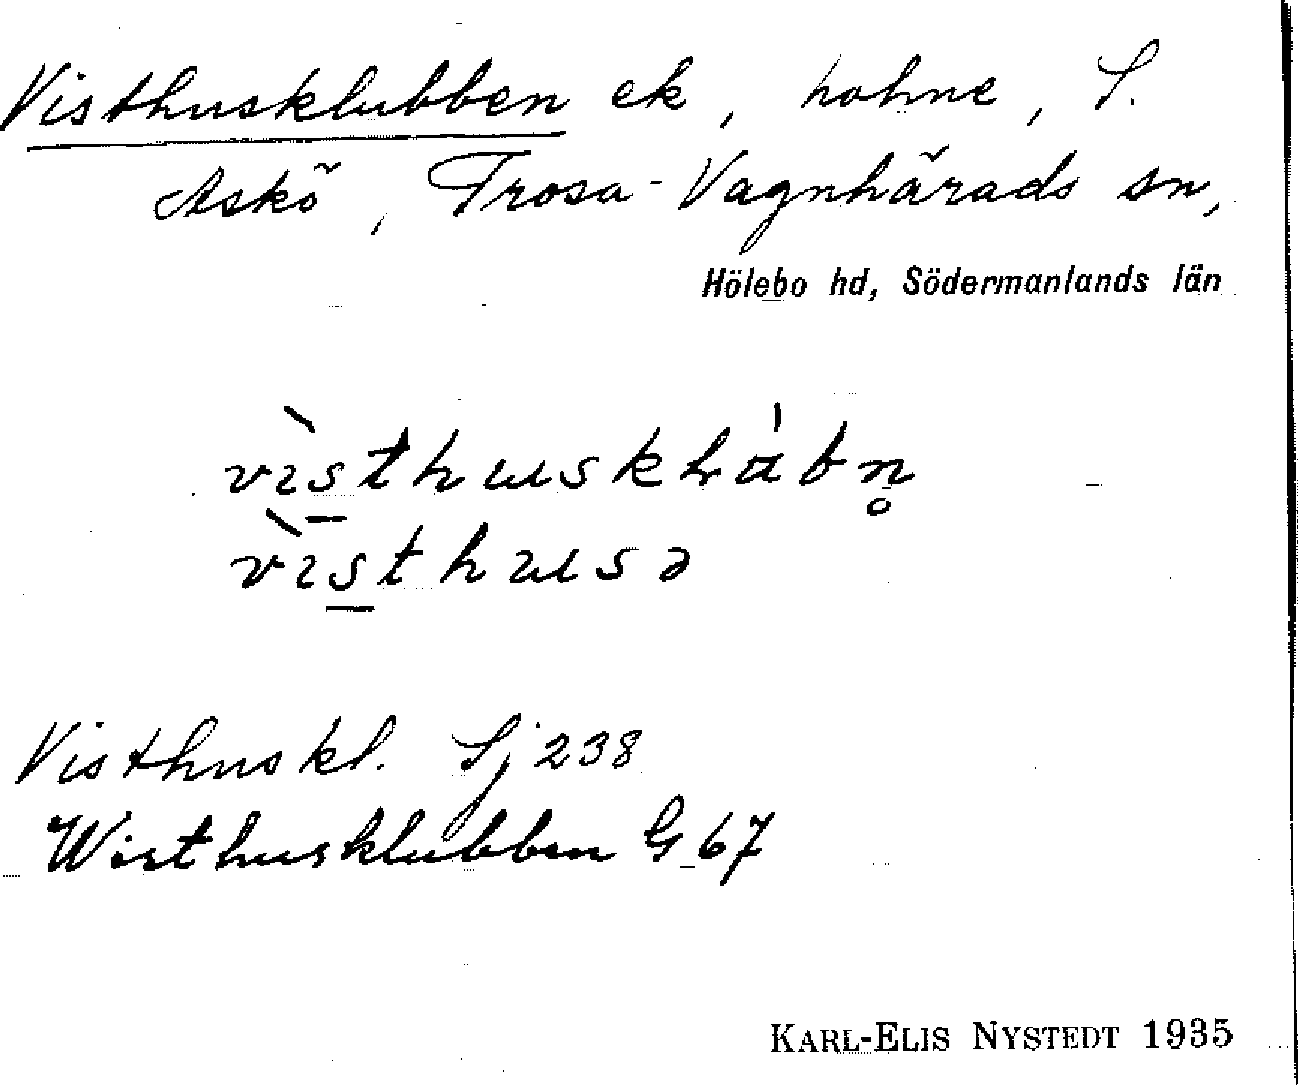 Visthusklubben ek, holme, S.
Askö, Trosa-Vagnhärads sn,
Hölebo hd, Södermanlands län
Visthuskl. Sj 238
Wisthusklubben G 67
KARL-ELIS NYSTEDT 1935